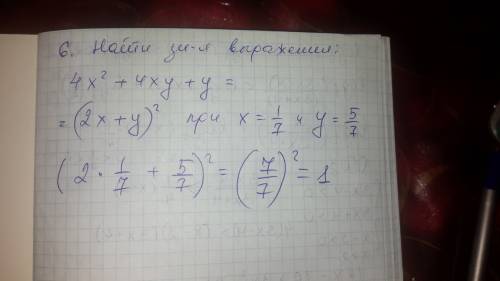 6. Найти зн-я выражения:
4x² + 4xy + y =
= (2x + y)² при x = 1/7 и y = 5/7
(2 · 1/7 + 5/7)² = (7/7)² = 1